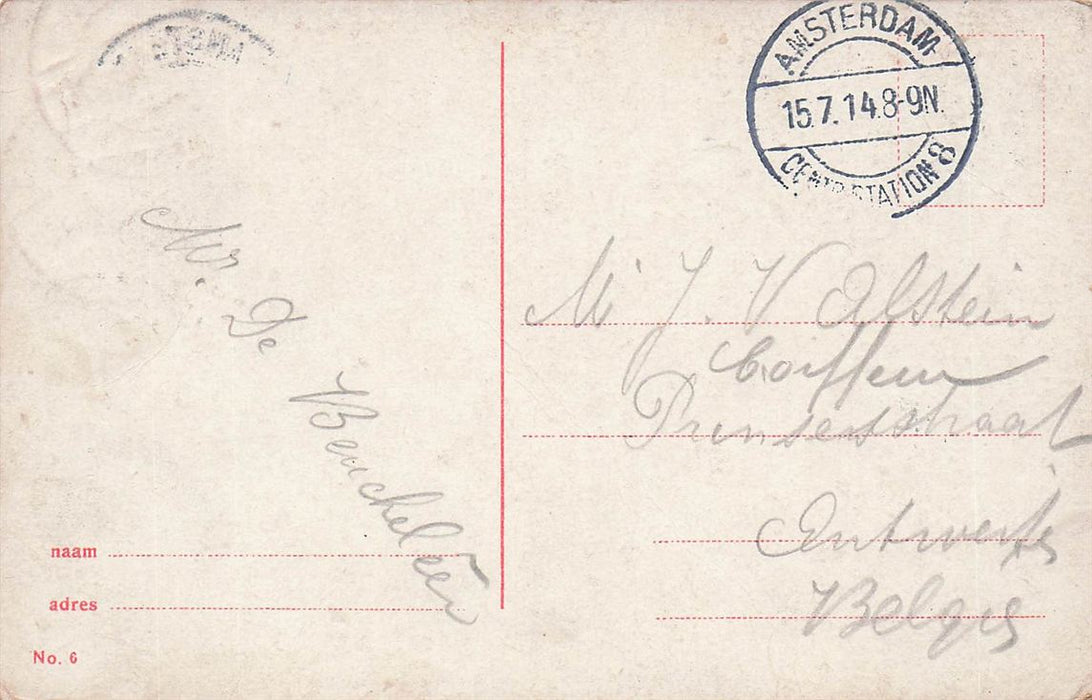 AMSTERDAM
15.7.14.8-9N.
CENTR. STATION 8
Mr. De
Beuckeleer
M J. V Alstein
Coiffeur
Prinsesstraat
Antwerp
Belgie
naam
adres
No. 6